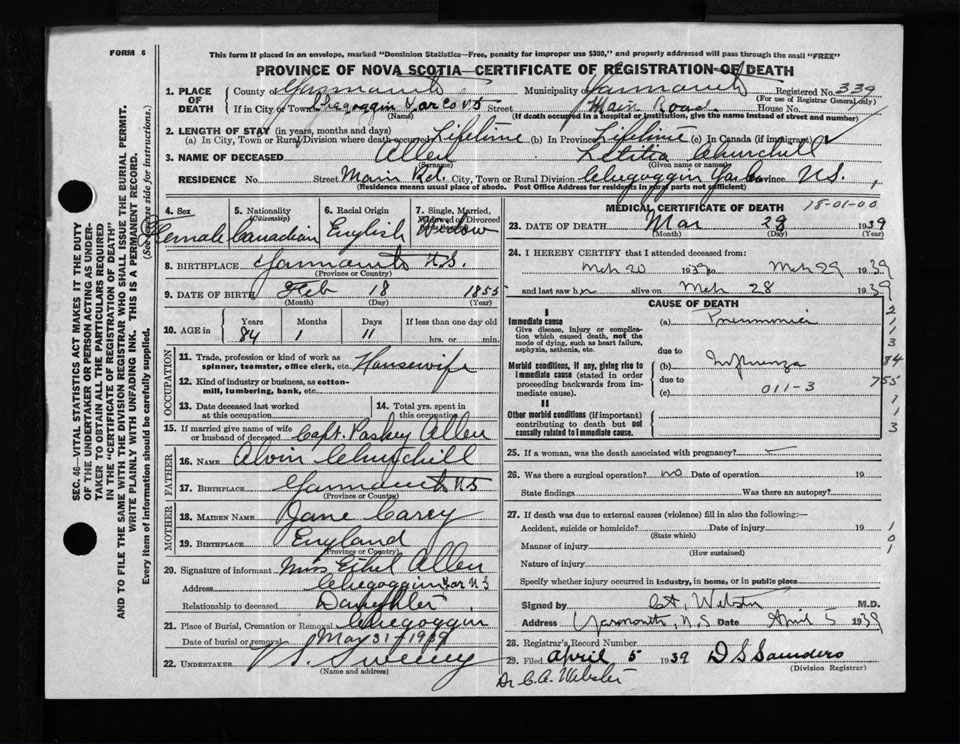 FORM 6
This form if placed in an envelope, marked "Dominion Statistics—Free, penalty for improper use $300," and properly addressed will pass through the mail "FREE"
PROVINCE OF NOVA SCOTIA—CERTIFICATE OF REGISTRATION OF DEATH
1. PLACE OF DEATH
County of Yarmouth Municipality of Yarmouth Registered No. 339
(For use of Registrar General only)
If in City or Town Chegoggin Yar Co NS Street Main Road House No.
(Name) (If death occurred in a hospital or institution, give the name instead of street and number)
2. LENGTH OF STAY (in years, months and days)
(a) In City, Town or Rural Division where death occurred Lifetime (b) In Province Lifetime (c) In Canada (if immigrant)
3. NAME OF DECEASED Allen Letitia Churchill
(Surname) (Given name or names)
RESIDENCE No. Street Main Rd. City, Town or Rural Division Chegoggin Yar Co Province N.S.
(Residence means usual place of abode. Post Office Address for residents in rural parts not sufficient)
4. Sex Female
5. Nationality (Citizenship) Canadian
6. Racial Origin English
7. Single, Married, Widowed or Divorced Widow
8. BIRTHPLACE Yarmouth N.S.
(Province or Country)
9. DATE OF BIRTH Feb 18 1855
(Month) (Day) (Year)
10. AGE in Years Months Days If less than one day old
84 1 11 hrs. or min.
OCCUPATION
11. Trade, profession or kind of work as spinner, teamster, office clerk, etc. Housewife
12. Kind of industry or business, as cotton-mill, lumbering, bank, etc.
13. Date deceased last worked at this occupation
14. Total yrs. spent in this occupation
15. If married give name of wife or husband of deceased Capt. Paskey Allen
FATHER
16. NAME Alvin Churchill
17. BIRTHPLACE Yarmouth NS
(Province or Country)
MOTHER
18. MAIDEN NAME Jane Carey
19. BIRTHPLACE England
(Province or Country)
20. Signature of informant Miss Ethel Allen
Address Chegoggin Yar NS
Relationship to deceased Daughter
21. Place of Burial, Cremation or Removal Chegoggin
Date of burial or removal May 31 1939
22. UNDERTAKER Sweeney
(Name and address)
MEDICAL CERTIFICATE OF DEATH 18-01-00
23. DATE OF DEATH Mar 29 1939
(Month) (Day) (Year)
24. I HEREBY CERTIFY that I attended deceased from:
Mch 20 1939 to Mch 29 1939
and last saw her alive on Mch 28 1939
CAUSE OF DEATH
I
Immediate cause (a) Pneumonia
Give disease, injury or complication which caused death, not the mode of dying, such as heart failure, asphyxia, asthenia, etc.
due to
Morbid conditions, if any, giving rise to immediate cause (stated in order proceeding backwards from immediate cause) (b) Influenza
due to
(c) 011-3
II
Other morbid conditions (if important) contributing to death but not causally related to immediate cause.
2
1
3
84
755
1
1
3
25. If a woman, was the death associated with pregnancy?
26. Was there a surgical operation? no Date of operation 19
State findings Was there an autopsy?
27. If death was due to external causes (violence) fill in also the following:—
Accident, suicide or homicide? Date of injury 19
(State which)
Manner of injury
(How sustained)
Nature of injury
Specify whether injury occurred in industry, in home, or in public place
1
01
Signed by C.A. Webster M.D.
Address Yarmouth, N.S Date April 5 1939
28. Registrar's Record Number
29. Filed April 5 1939 D S Saunders
(Division Registrar)
Dr C.A. Webster
SEC. 46—VITAL STATISTICS ACT MAKES IT THE DUTY
OF THE UNDERTAKER OR PERSON ACTING AS UNDER-
TAKER TO OBTAIN ALL THE PARTICULARS REQUIRED
IN THE "CERTIFICATE OF REGISTRATION OF DEATH"
AND TO FILE THE SAME WITH THE DIVISION REGISTRAR WHO SHALL ISSUE THE BURIAL PERMIT.
WRITE PLAINLY WITH UNFADING INK. THIS IS A PERMANENT RECORD.
Every item of information should be carefully supplied. (See reverse side for instructions.)